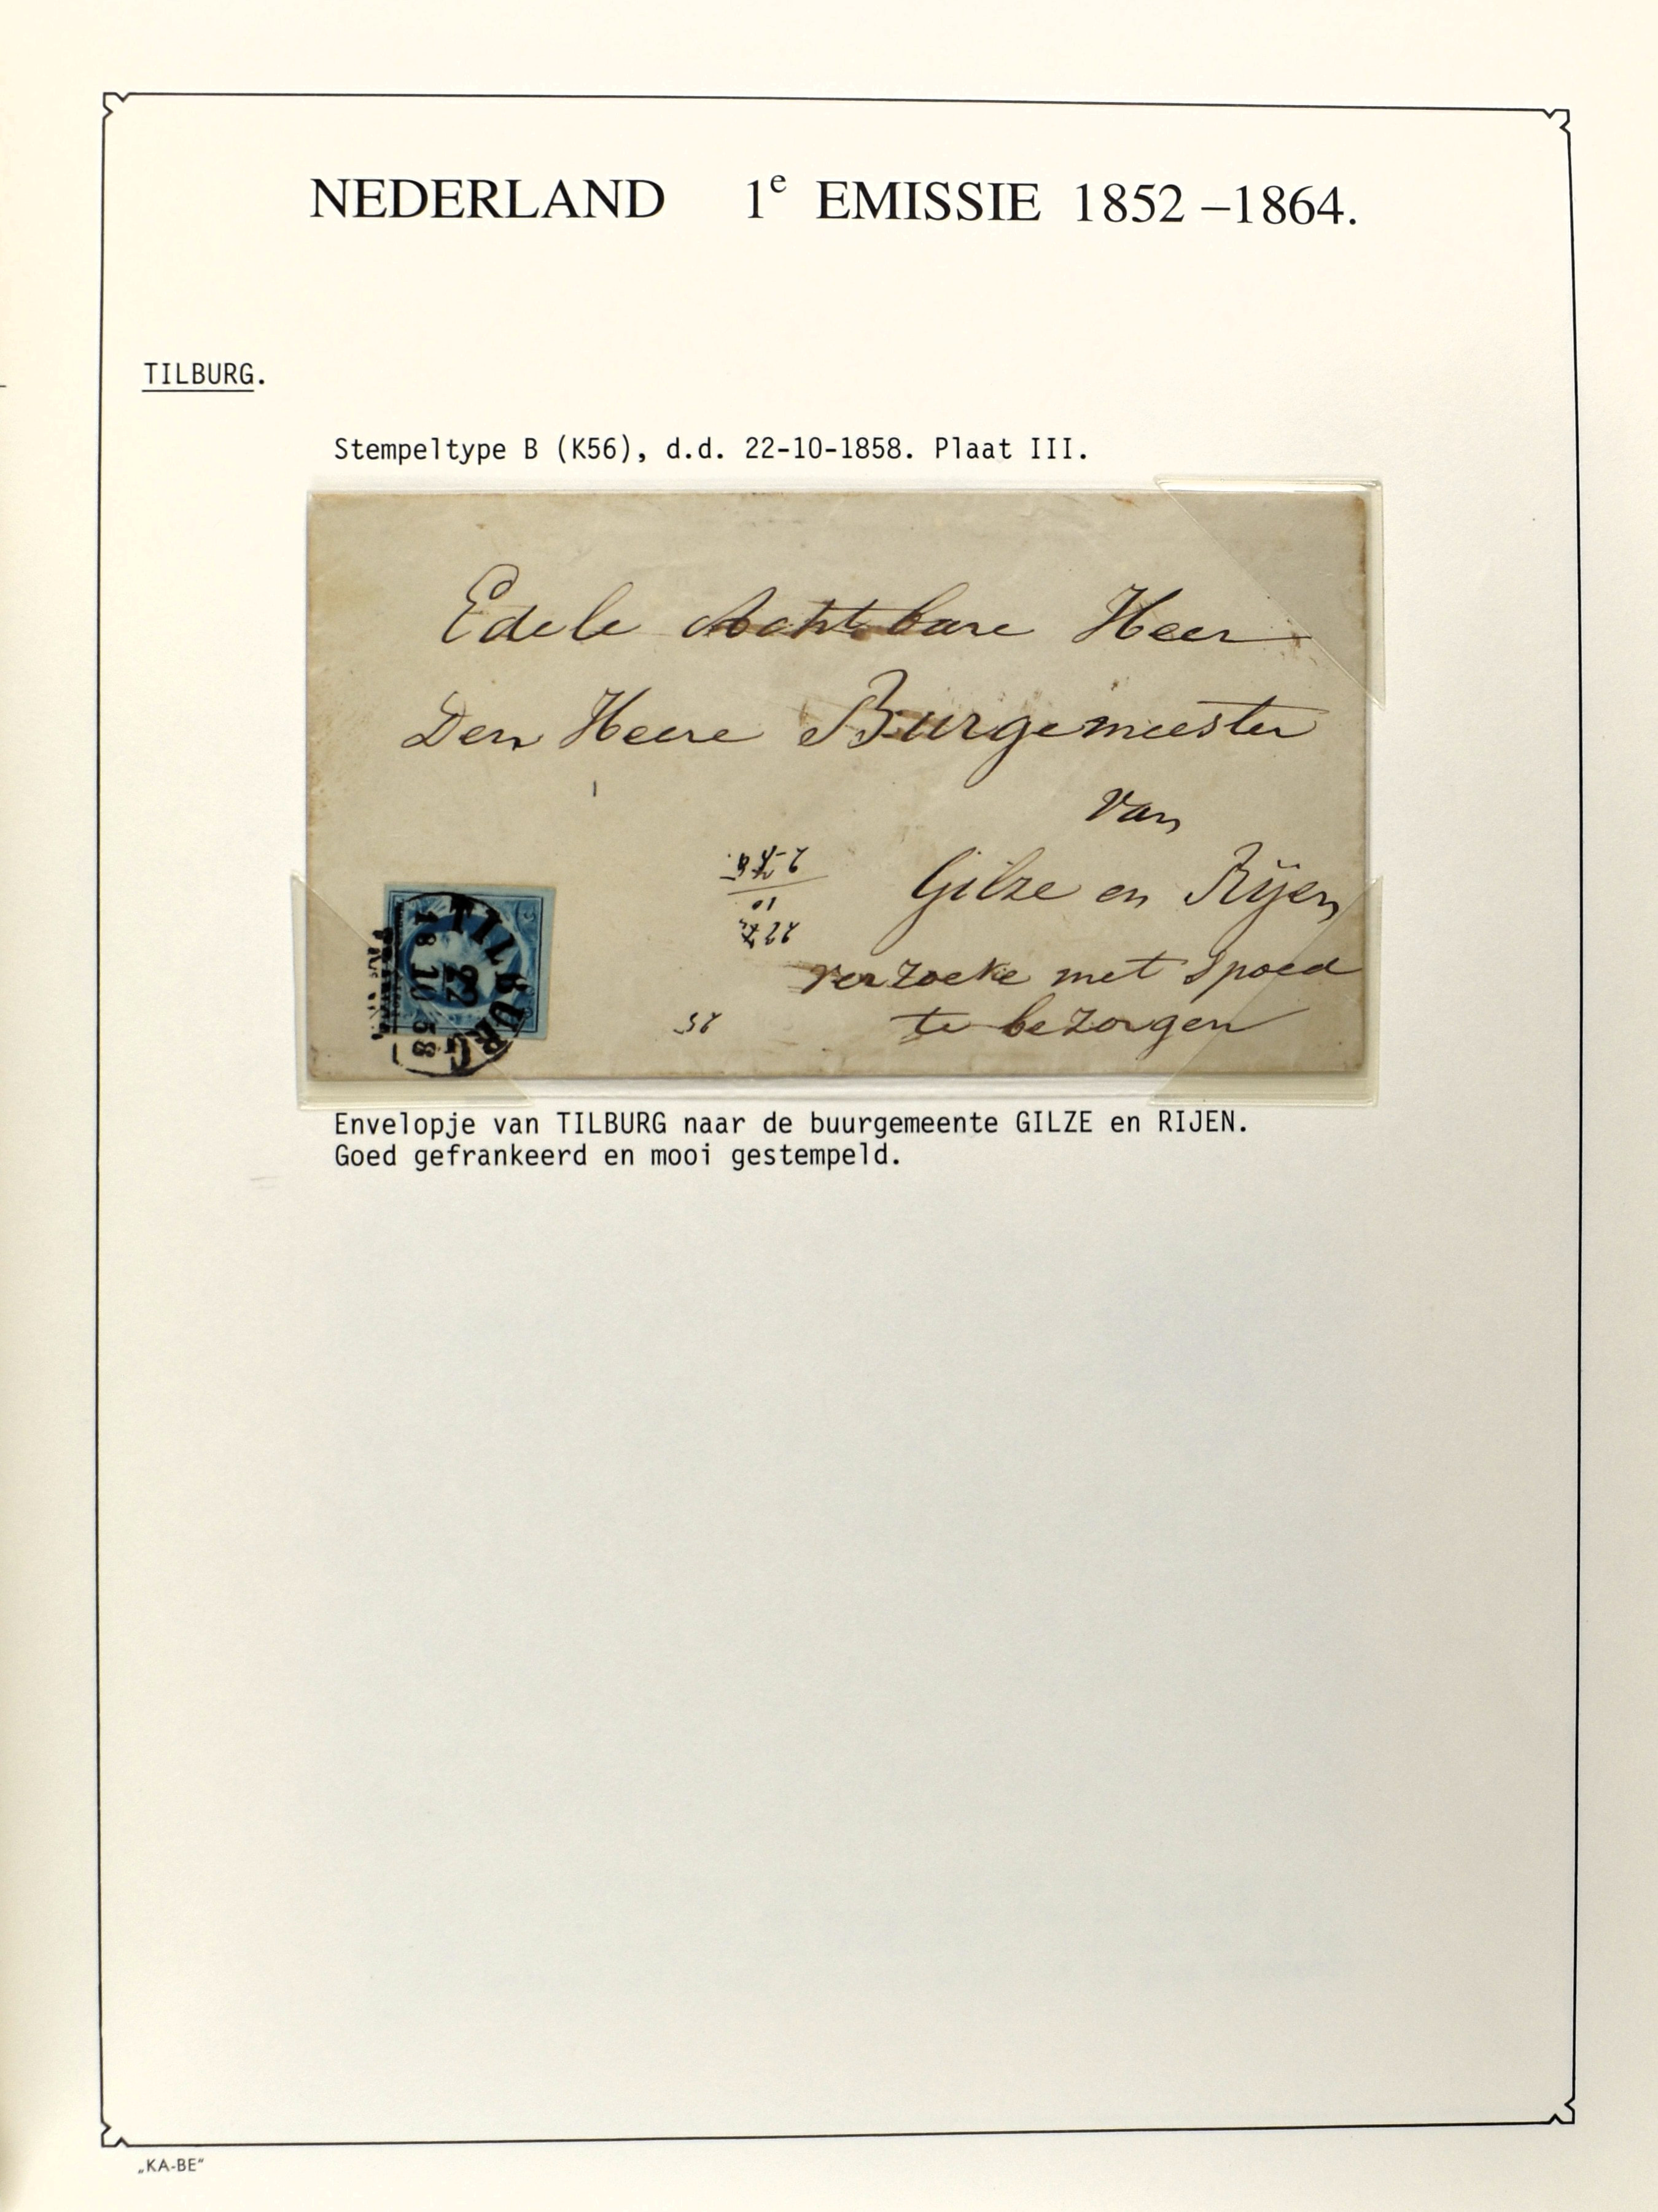 NEDERLAND 1e EMISSIE 1852-1864.
TILBURG.
Stempeltype B (K56), d.d. 22-10-1858. Plaat III.
Edele Achtbare Heer
Den Heere Burgemeester
van
Gilze en Rijen
verzoeke met spoed
te bezorgen
TILBURG
22
18 10 58
Envelopje van TILBURG naar de buurgemeente GILZE en RIJEN.
Goed gefrankeerd en mooi gestempeld.
„KA-BE"